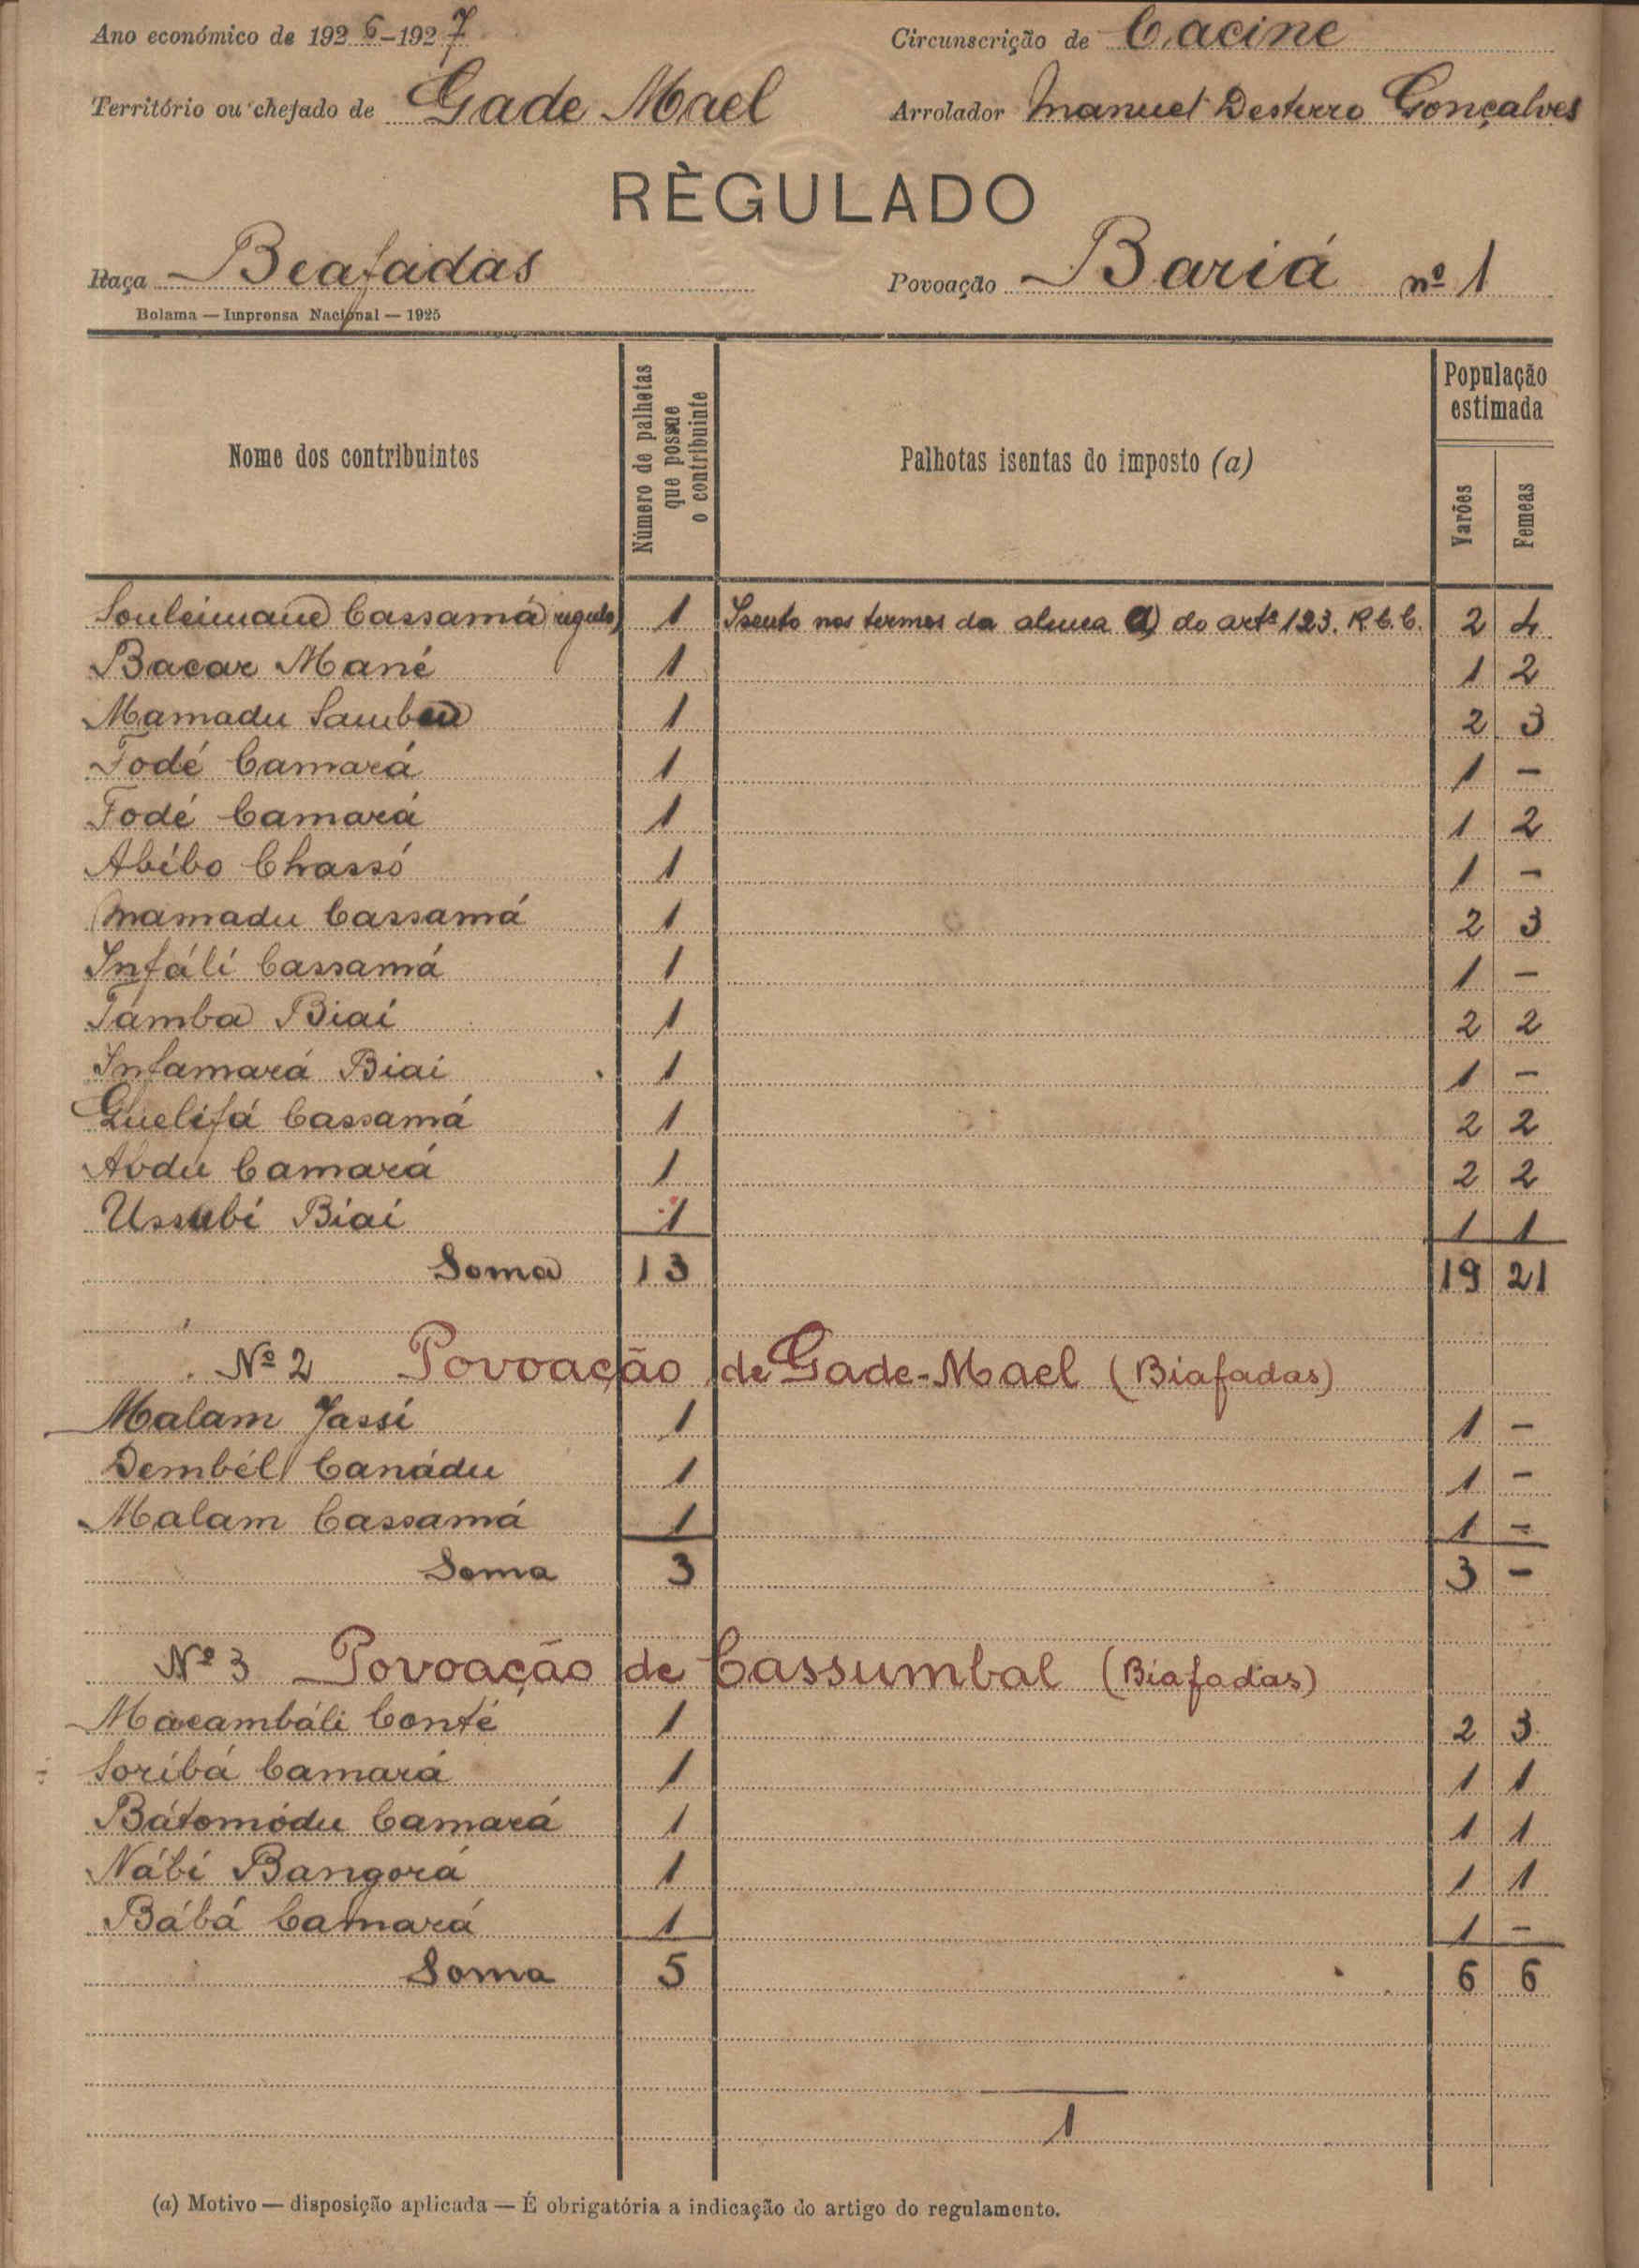 Ano económico de 1926-1927 Circunscrição de Cacine
Território ou chefado de Gade Mael Arrolador Manuel Desterro Gonçalves
RÈGULADO
Raça Beafadas Povoação Bariá nº 1
Bolama — Imprensa Nacional — 1925
Nome dos contribuintes Número de palhetas que possue o contribuinte Palhotas isentas do imposto (a) População estimada Varões Femeas
Souleimane Cassamá (regulo) 1 Isento nos termos da alinea a) do artº 123. R.C.C. 2 4
Bacar Mané 1 1 2
Mamadu Sambu 1 2 3
Fodé Camará 1 1 -
Fodé Camará 1 1 2
Abibo Chassó 1 1 -
Mamadu Cassamá 1 2 3
Infáli Cassamá 1 1 -
Tamba Biai 1 2 2
Infamará Biai 1 1 -
Quelifá Cassamá 1 2 2
Abdu Camará 1 2 2
Ussubi Biai 1 1 1
Soma 13 19 21
Nº 2 Povoação de Gade-Mael (Biafadas)
Malam Jassi 1 1 -
Dembél Canádu 1 1 -
Malam Cassamá 1 1 -
Soma 3 3 -
Nº 3 Povoação de Cassumbal (Biafadas)
Macambáli Conté 1 2 3
Soribá Camará 1 1 1
Bátomódu Camará 1 1 1
Nábi Bangorá 1 1 1
Bábá Camará 1 1 -
Soma 5 6 6
1
(a) Motivo — disposição aplicada — É obrigatória a indicação do artigo do regulamento.